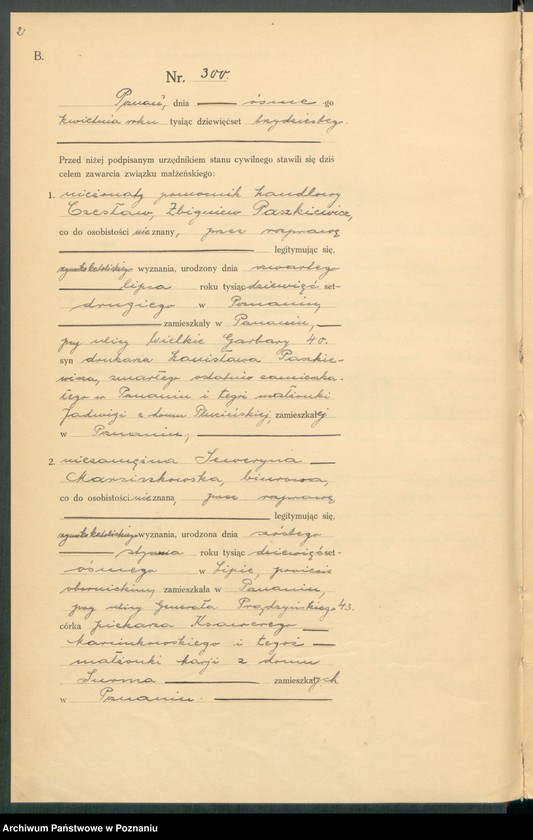 2
B.
Nr. 300.
Poznań, dnia ósme -go
kwietnia roku tysiąc dziewięćset trzydziestego.
Przed niżej podpisanym urzędnikiem stanu cywilnego stawili się dziś
celem zawarcia związku małżeńskiego:
1. nieżonaty pomocnik handlowy
Czesław, Zbigniew Paszkiewicz,
co do osobistości nieznany, przez rozprawę
legitymując się,
rzymskokatolickiego wyznania, urodzony dnia czwartego
lipca roku tysiąc dziewięć set-
drugiego w Poznaniu,
zamieszkały w Poznaniu,
przy ulicy Wielkie Garbary 40.
syn drukarza Stanisława Paszkie-
wicza, zmarłego ostatnio zamieszka-
łego w Poznaniu i tegoż małżonki
Jadwigi z domu zamieszkałej
w Poznaniu,
2. niezamężna Seweryna
biurowa,
co do osobistości nieznana, przez rozprawę
legitymując się,
rzymskokatolickiego wyznania, urodzona dnia szóstego
stycznia roku tysiąc dziewięćset-
ósmego w Lipie, powiecie
obornickim, zamieszkała w Poznaniu,
przy ulicy Generała Prądzyńskiego 43.
córka piekarza Ksawerego
Marcinkowskiego i tegoż
małżonki Marji z domu
zamieszkałych
w Poznaniu.
Archiwum Państwowe w Poznaniu